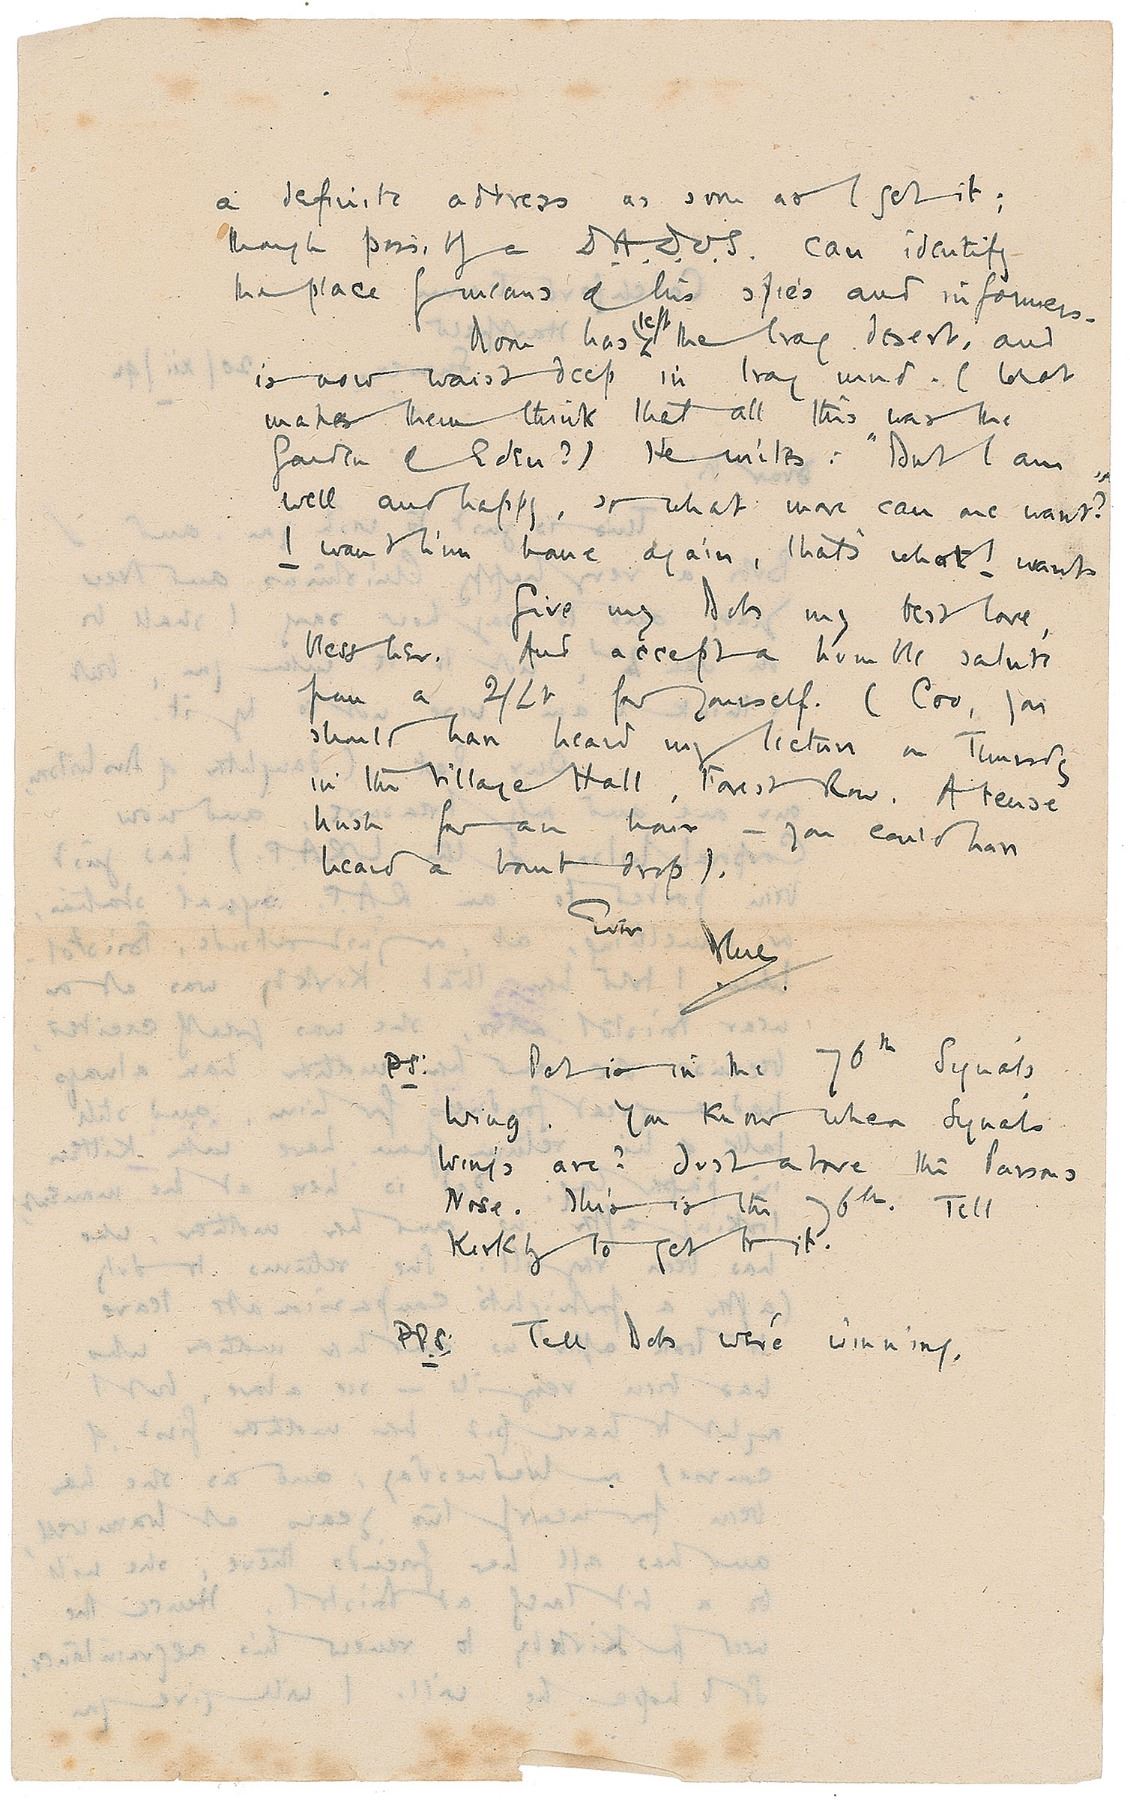 a definite address as soon as I get it;
though possibly a D.A.D.O.S. can identify
the place by means of his spies and informers.
Moon has left the Iraq desert, and
is now waist deep in Iraq mud. (What
makes them think that all this was the
Garden of Eden?) He writes: "But I am
well and happy, so what more can one want?"
I want him home again, that's what I wants
Give my Dobs my best love,
bless her. And accept a humble salute
from a 2/Lt for yourself. (Coo, you
should have heard my lecture on Thursday
in the Village Hall, Forest Row. A tense
hush for an hour – you could have
heard a bomb drop).
Ever
Blue
PS: Dot is in the 76th Signals
Wing. You know where Signals
Wings are? Just above the Parsons
Nose. This is the 76th. Tell
Kirkby to get to it.
PPS: Tell Dobs we're winning.